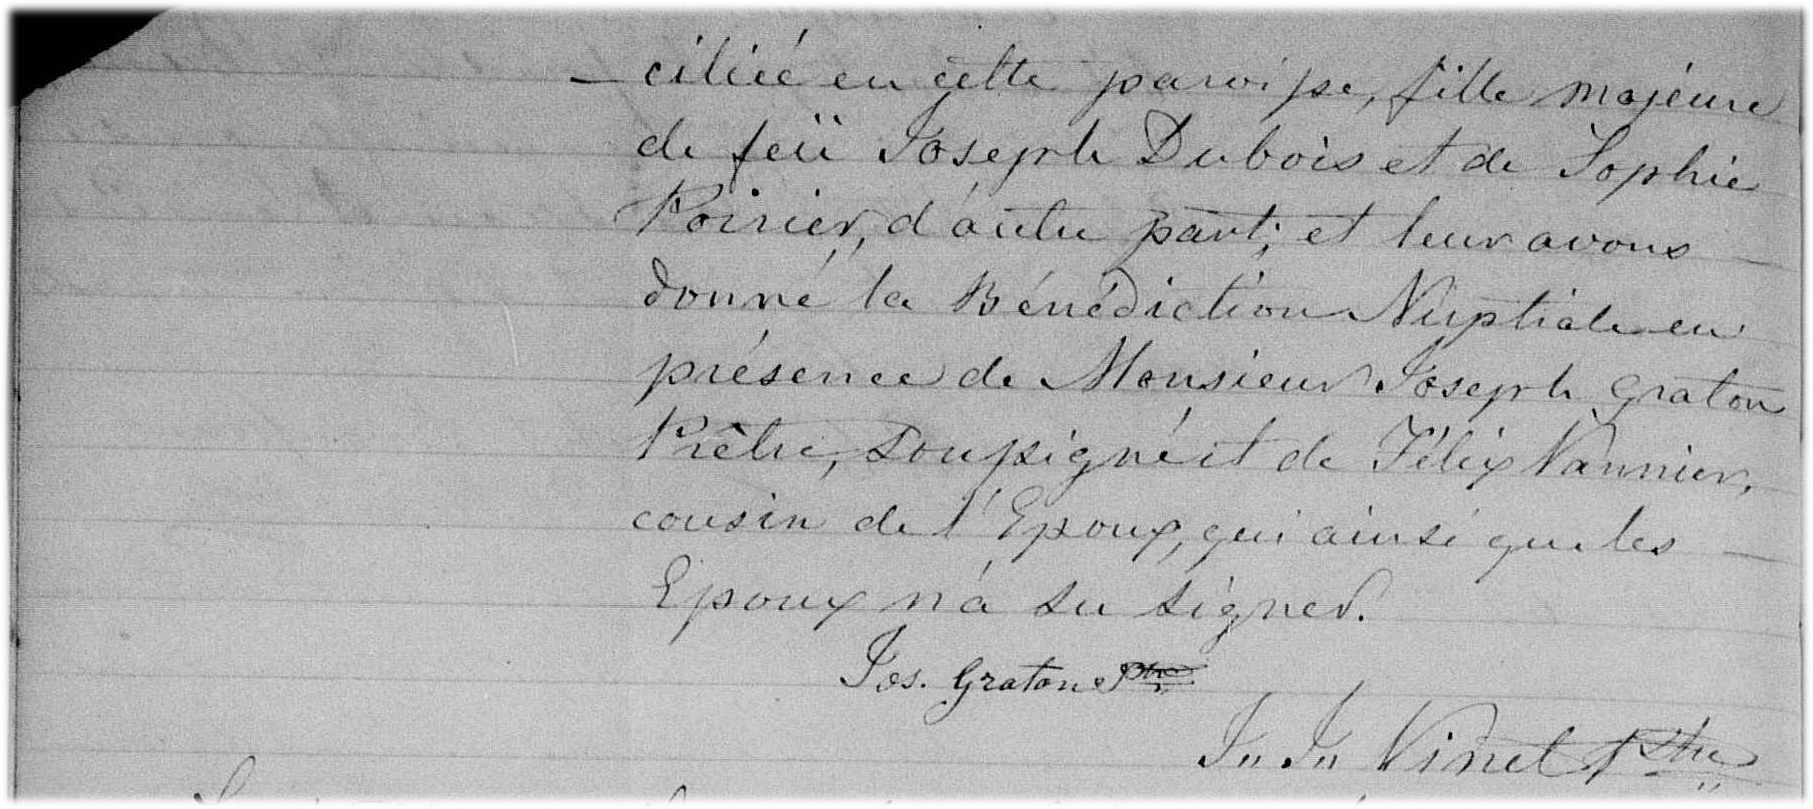 – ciliée en cette paroisse, fille majeure
de feü Joseph Dubois et de Sophie
Poirier, d'autre part; et leur avons –
donné la Bénédiction Nuptiale en
présence de Monsieur Joseph Graton
Prêtre, soussigné et de Félix Vannier,
cousin de l'Epoux, qui ainsi que les –
Epoux n'a su signer.
Jos. Graton Ptre
J. J. Vinet Ptre